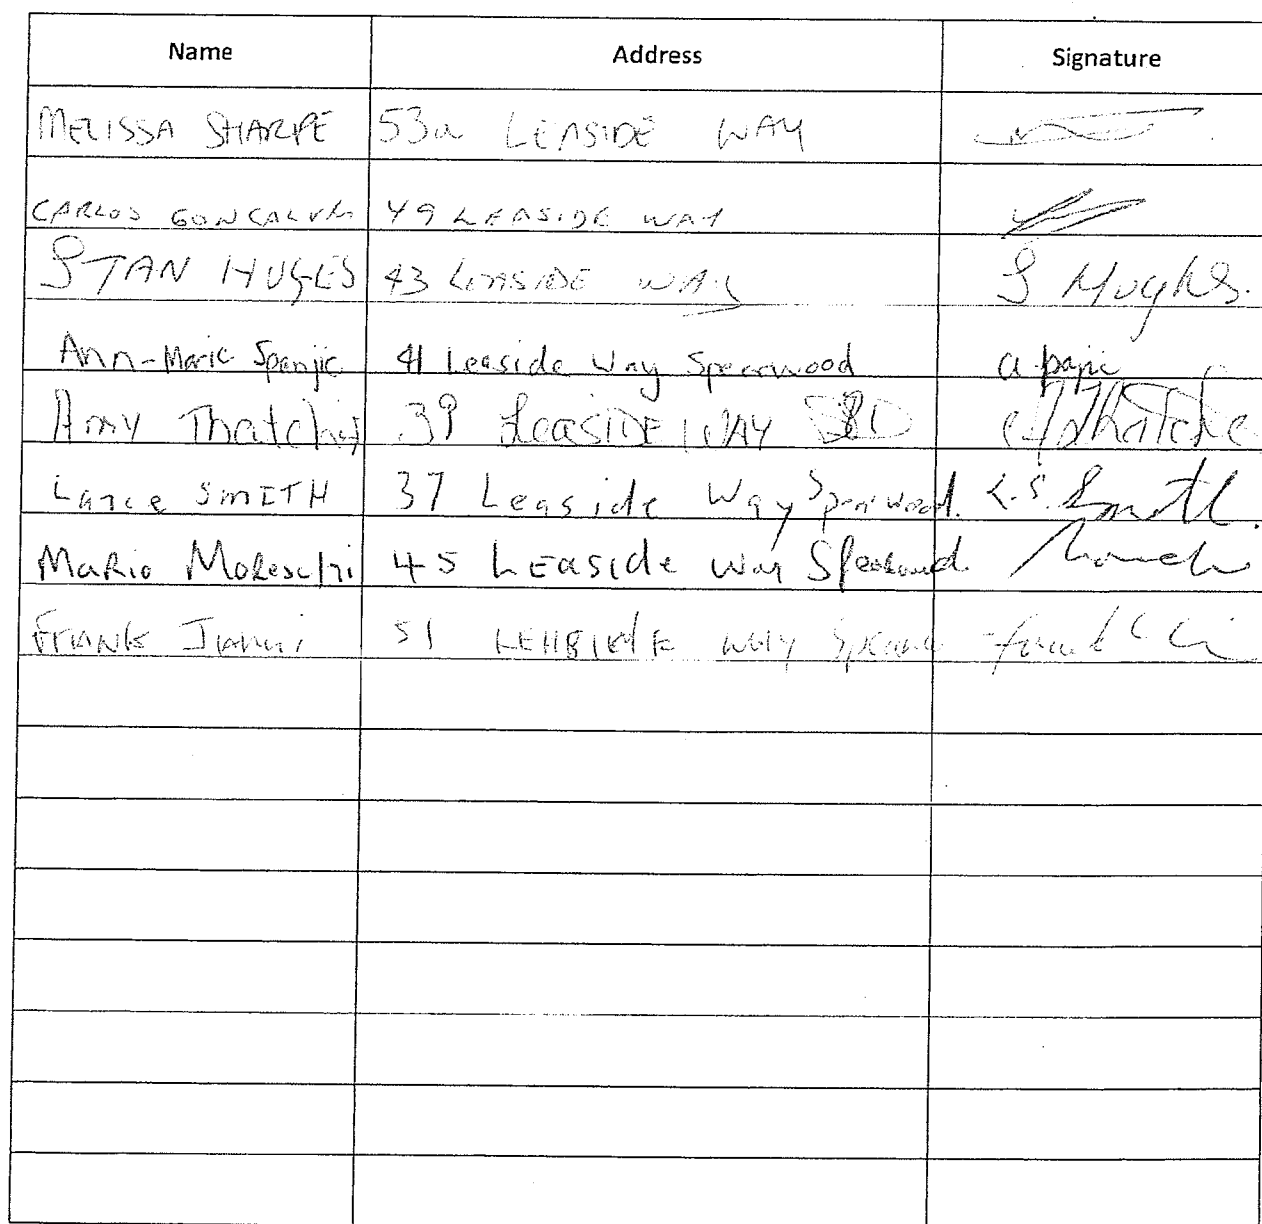 Name Address Signature
MELISSA SHARPE 53a LEASIDE WAY
CARLOS GONCALVES 49 LEASIDE WAY
STAN HUGES 43 LEASIDE WAY S Hughes.
Ann-Marie Spanjic 41 Leaside Way Spearwood
Amy Thatcher 39 LeasIDE WAY
Lance SMITH 37 Leaside Way Spearwood. L.S. Smith.
MaRio MoReschi 45 LEaside way Spearwood.
FRANK 51 way